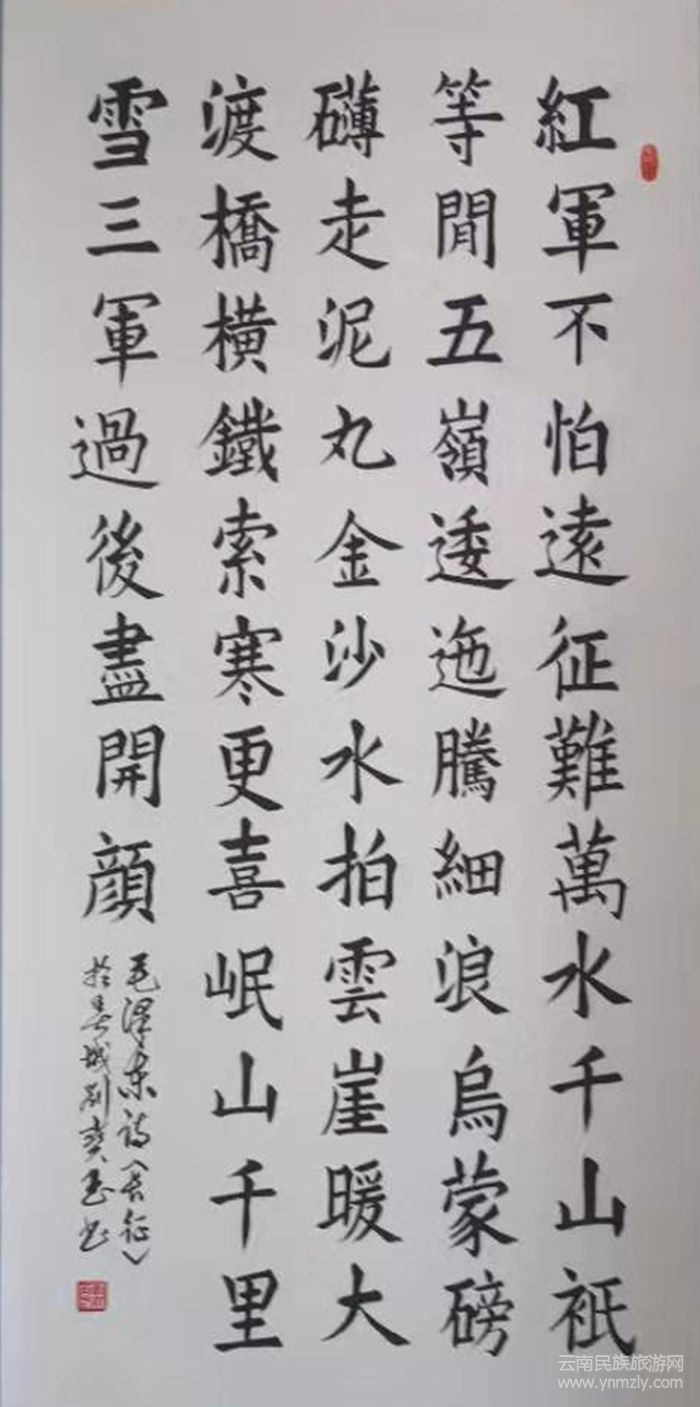 紅軍不怕遠征難萬水千山祇
等閒五嶺逶迤騰細浪烏蒙磅
礴走泥丸金沙水拍雲崖暖大
渡橋橫鐵索寒更喜岷山千里
雪三軍過後盡開顔
毛澤东诗《长征》
於春城刘寶玉书
云南民族旅游网
www.ynmzly.com